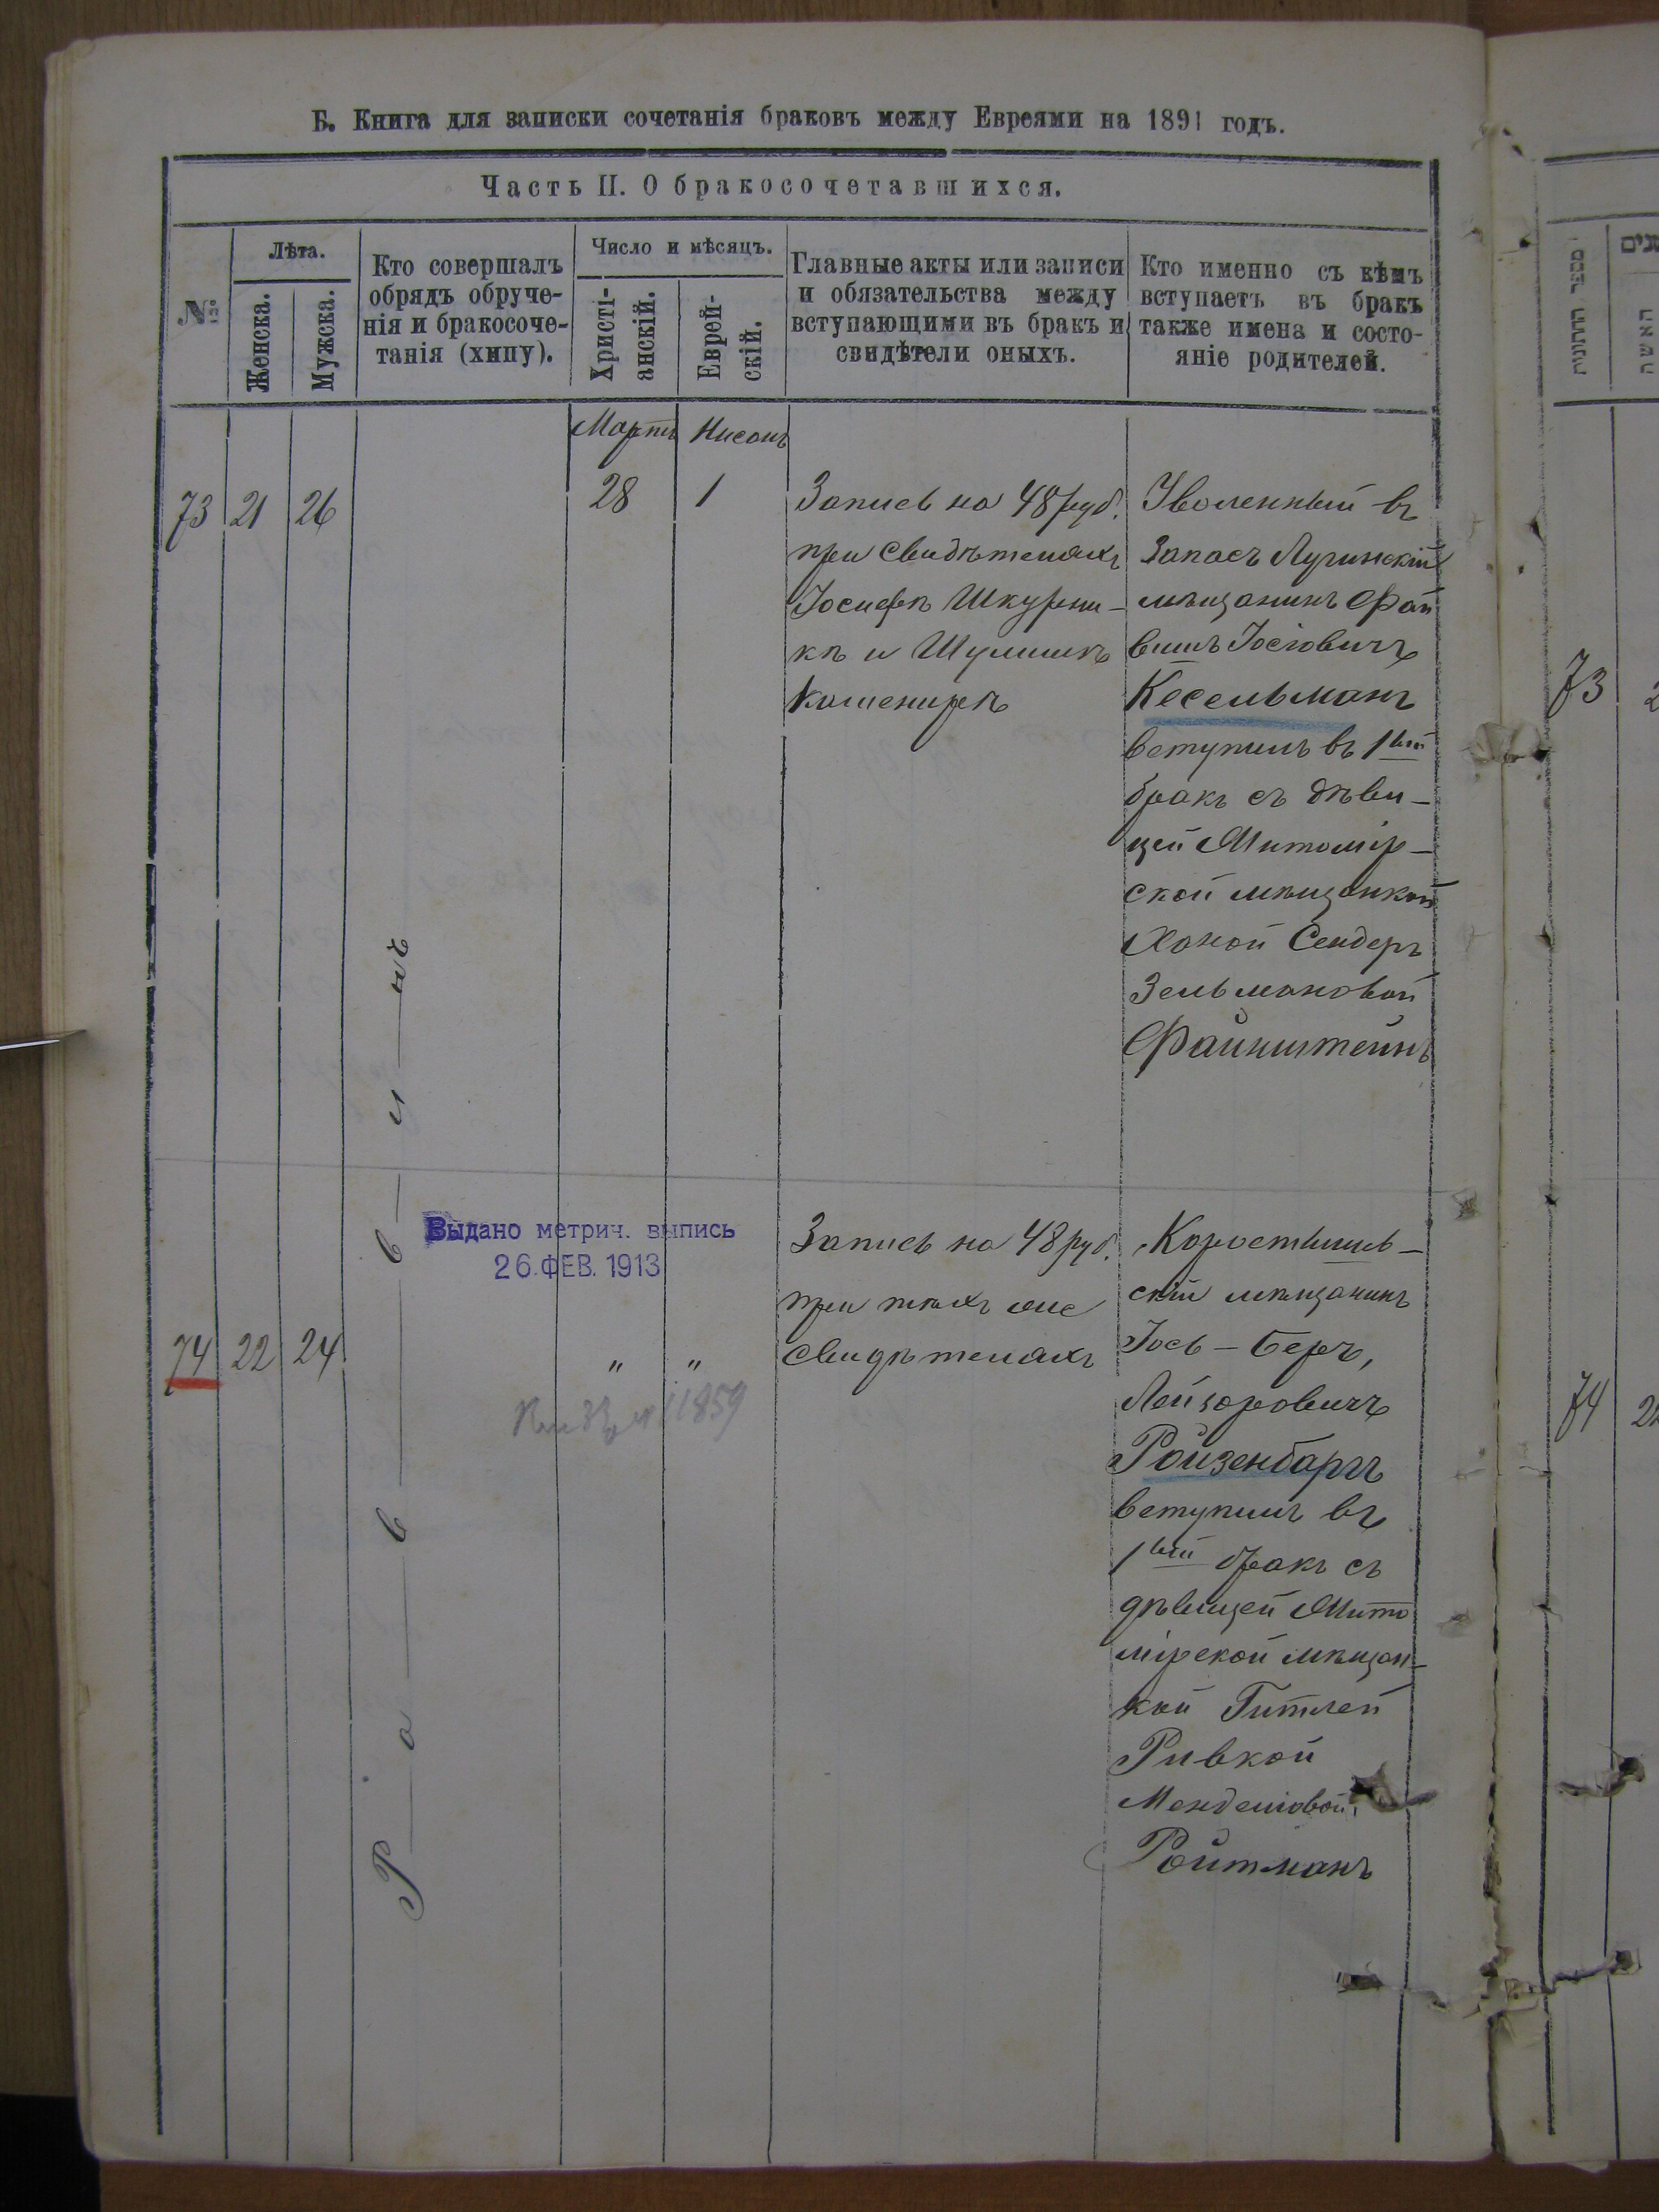 Б. Книга для записки сочетанія браковъ между Евреями на 1891 годъ.
Часть II. О бракосочетавшихся.
№
Лѣта.
Женска.
Мужска.
Кто совершалъ
обрядъ обруче-
нія и бракосоче-
танія (хипу).
Число и мѣсяцъ.
Христі-
анскій.
Еврей-
скій.
Главные акты или записи
и обязательства между
вступающими въ бракъ и
свидѣтели оныхъ.
Кто именно съ кѣмъ
вступаетъ въ бракъ
также имена и состо-
яніе родителей.
Мартъ Нисанъ
73 21 26
28 1
Запись на 48 руб.
при свидѣтеляхъ
Іосифѣ Шкурни-
кѣ и Шулимѣ
Кошенирѣ
Уволенный въ
запасъ Лугинскій
мѣщанинъ Фай
вишъ Іосіовичъ
Кесельманъ
вступилъ въ 1ый
бракъ съ дѣви-
цей Житомір-
ской мѣщанкой
Ханой Сендеръ
Зельмановой
Файнштейнъ
Раввинъ
Выдано метрич. выпись
26.ФЕВ. 1913
74 22 24
" "
11859
Запись на 48 руб.
при тѣхъ же
свидѣтеляхъ
Коростышев-
скій мѣщанинъ
Іось-Беръ,
Лейзоровичъ
Ройзенбаргъ
вступилъ въ
1ый бракъ съ
дѣвицей Жито
мірской мѣщан-
кой Гитлей
Ривкой
Менделіовой,
Ройтманъ
מספר החתונות
האשה
73
74